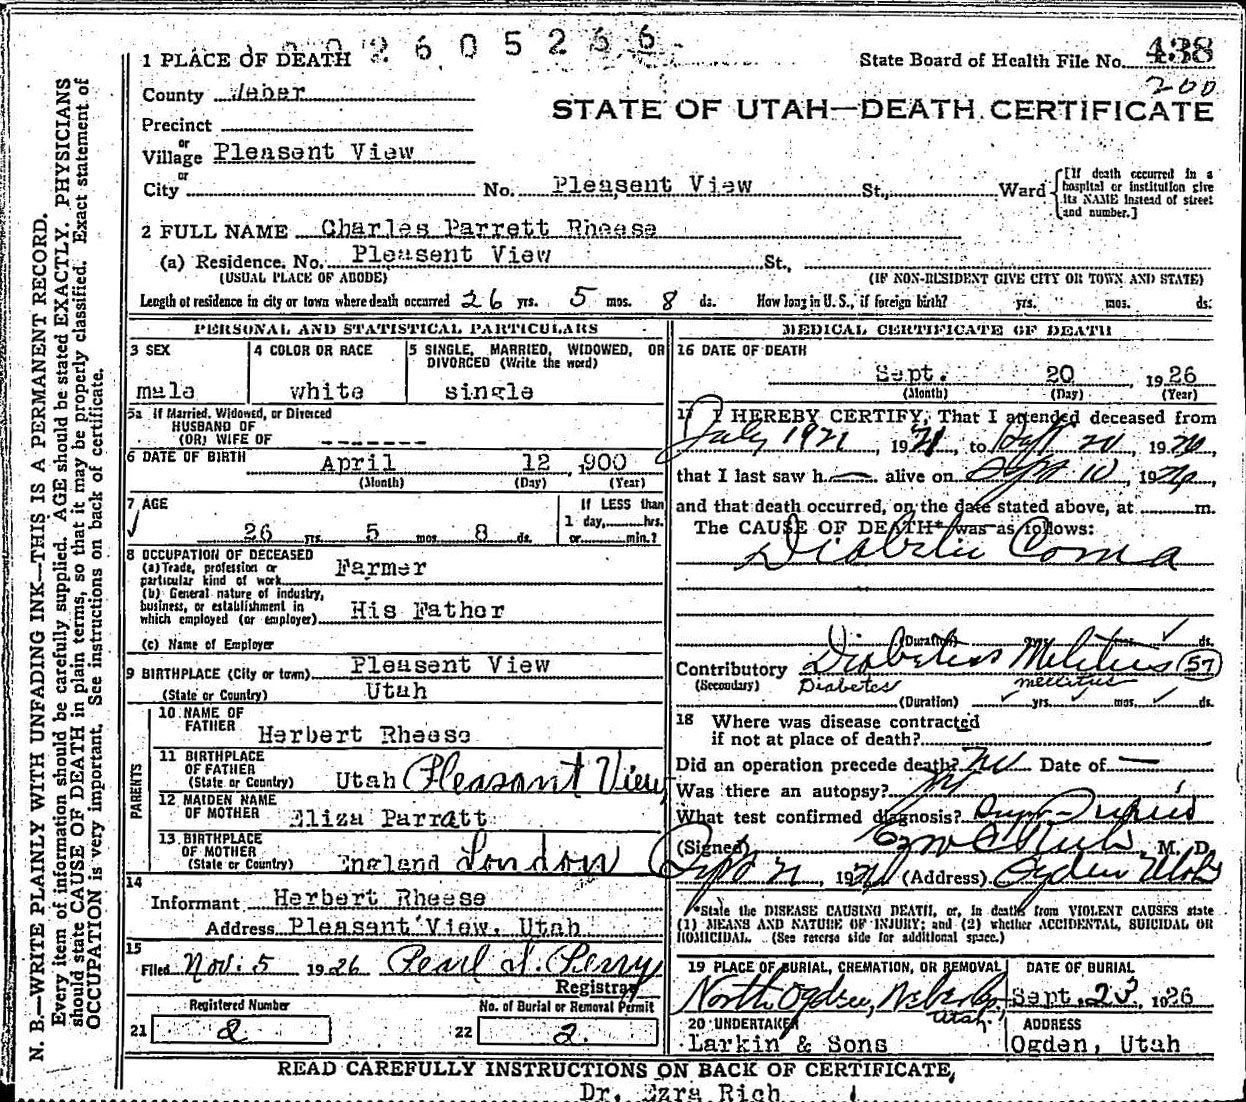 002605266
1 PLACE OF DEATH
State Board of Health File No. 438
200
County Weber
STATE OF UTAH—DEATH CERTIFICATE
Precinct
or
Village Pleasent View
or
City No. Pleasent View St., Ward
[If death occurred in a hospital or institution give its NAME instead of street and number.]
2 FULL NAME Charles Parrett Rhease
(a) Residence, No. Pleasent View St.,
(USUAL PLACE OF ABODE) (IF NON-RESIDENT GIVE CITY OR TOWN AND STATE)
Length of residence in city or town where death occurred 26 yrs. 5 mos. 8 ds. How long in U. S., if foreign birth? yrs. mos. ds.
PERSONAL AND STATISTICAL PARTICULARS
3 SEX
male
4 COLOR OR RACE
white
5 SINGLE, MARRIED, WIDOWED, OR
DIVORCED (Write the word)
single
5a If Married, Widowed, or Divorced
HUSBAND OF
(OR) WIFE OF -------
6 DATE OF BIRTH April 12 1900
(Month) (Day) (Year)
7 AGE
26 yrs. 5 mos. 8 ds.
If LESS than
1 day, hrs.
or min.?
8 OCCUPATION OF DECEASED
(a) Trade, profession or
particular kind of work Farmer
(b) General nature of industry,
business, or establishment in
which employed (or employer) His Father
(c) Name of Employer
9 BIRTHPLACE (City or town) Pleasent View
(State or Country) Utah
PARENTS
10 NAME OF
FATHER Herbert Rheese
11 BIRTHPLACE
OF FATHER
(State or Country) Utah Pleasant View
12 MAIDEN NAME
OF MOTHER Eliza Parratt
13 BIRTHPLACE
OF MOTHER
(State or Country) England London
14
Informant Herbert Rheese
Address Pleasent View, Utah
15
Filed Nov. 5 1926 Pearl I. Perry
Registrar
Registered Number
21 2
No. of Burial or Removal Permit
22 2.
MEDICAL CERTIFICATE OF DEATH
16 DATE OF DEATH
Sept. 20, 1926
(Month) (Day) (Year)
17 I HEREBY CERTIFY, That I attended deceased from
July 1921, 1921, to Sept 20 1926
that I last saw h alive on Sept 10, 1926,
and that death occurred, on the date stated above, at m.
The CAUSE OF DEATH* was as follows:
Diabetic Coma
(Duration) yrs. mos. ds.
Contributory Diabetes Melitius 57
(Secondary) Diabetes mellitus
(Duration) yrs. mos. ds.
18 Where was disease contracted
if not at place of death?
Did an operation precede death? No Date of —
Was there an autopsy? No
What test confirmed diagnosis?
(Signed) Rich, M. D.
Sept 21, 1926 (Address) Ogden Utah
*State the DISEASE CAUSING DEATH, or, in deaths from VIOLENT CAUSES state
(1) MEANS AND NATURE OF INJURY; and (2) whether ACCIDENTAL, SUICIDAL OR
HOMICIDAL. (See reverse side for additional space.)
19 PLACE OF BURIAL, CREMATION, OR REMOVAL
North Ogden, Weber Co
Utah.
DATE OF BURIAL
Sept. 23, 1926
20 UNDERTAKER
Larkin & Sons
ADDRESS
Ogden, Utah
READ CAREFULLY INSTRUCTIONS ON BACK OF CERTIFICATE,
Dr. Ezra Rich
N. B.—WRITE PLAINLY WITH UNFADING INK—THIS IS A PERMANENT RECORD.
Every item of information should be carefully supplied. AGE should be stated EXACTLY. PHYSICIANS
should state CAUSE OF DEATH in plain terms, so that it may be properly classified. Exact statement of
OCCUPATION is very important. See instructions on back of certificate.